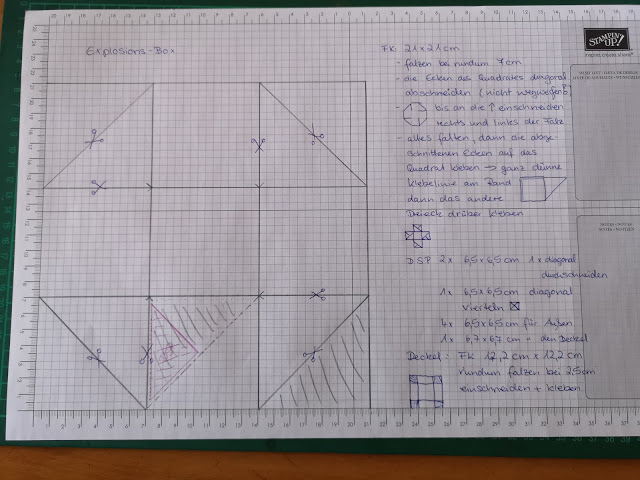 Explosions-Box
FK 21 x 21 cm
- falzen bei rundum 7 cm
- die Ecken des Quadrates diagonal
abschneiden (nicht wegwerfen!)
- bis an die ↑ einschneiden
rechts und links der Falz
- alles falten, dann die abge-
schnittenen Ecken auf das
Quadrat kleben → ganz dünne
Klebelinie am Rand
dann das andere
Dreieck drüber kleben
DSP 2x 6,5 x 6,5 cm 1x diagonal
durchschneiden
1x 6,5 x 6,5 cm diagonal
vierteln
4x 6,5 x 6,5 cm für Außen
1x 8,7 x 8,7 cm " den Deckel
Deckel: FK 12,2 cm x 12,2 cm
rundum falzen bei 2,5 cm
einschneiden + kleben
STAMPIN' UP!